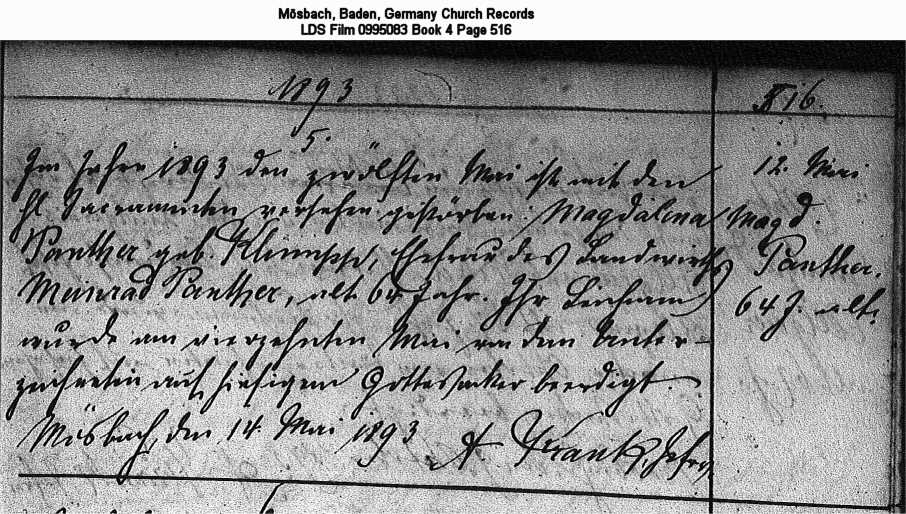 Mösbach, Baden, Germany Church Records
LDS Film 0995083 Book 4 Page 516
1893
516.
5.
Im Jahre 1893 den zwölften Mai ist mit den
hl. Sacramenten versehen gestorben: Magdalena
Panther geb. Klumpp, Ehefrau des Landwirths
Meinrad Panther, alt 64 Jahr. Ihr Leichnam
wurde am vierzehnten Mai von dem Unter-
zeichneten auf hiesigem Gottesacker beerdigt.
Mösbach, den 14. Mai 1893
A
12. Mai
Magd.
Panther.
64 J. alt.